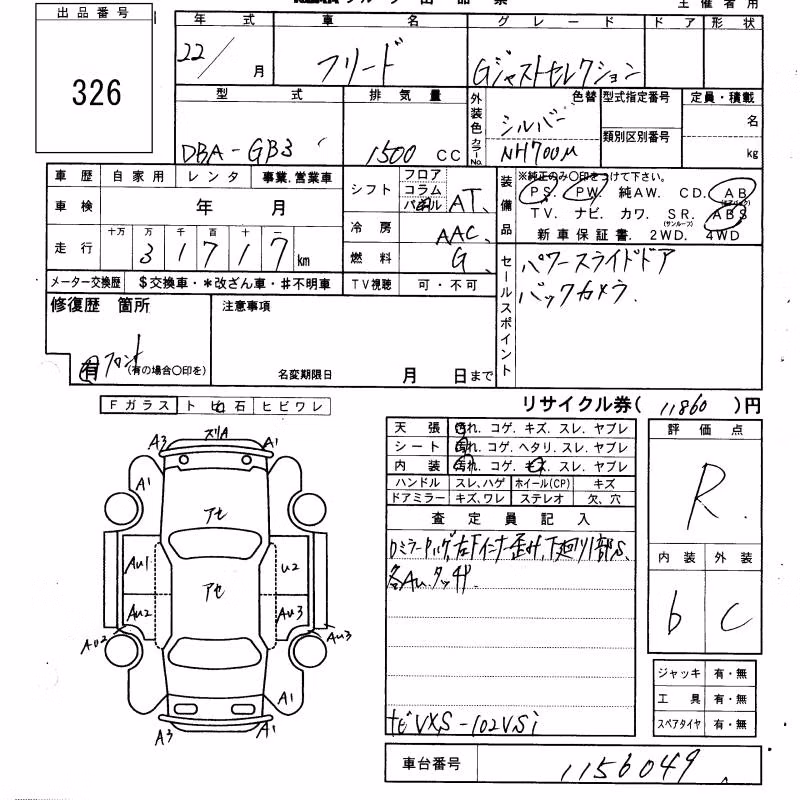 出品票 主催者用
出品番号
326
年式 車名 グレード ドア 形状
22/ 月 フリード Gジャストセレクション
型式 排気量 外装色 色替 型式指定番号 定員・積載
DBA-GB3 1500 CC シルバー カラーNo. NH700M 類別区別番号 名 kg
車歴 自家用 レンタ 事業.営業車
車検 年 月
走行 十万 万 千 百 十 一
3 1 7 1 7 km
メーター交換歴 $交換車・*改ざん車・#不明車
シフト フロア コラム パネル AT、
冷房 AAC、
燃料 G、
TV視聴 可・不可
装備品 ※純正のみ〇印をつけて下さい。
PS. PW. 純AW. CD. AB (エアバック)
TV. ナビ. カワ. SR. (サンルーフ) ABS
新車保証書. 2WD. 4WD
セールスポイント パワースライドドア
バックカメラ.
修復歴 箇所
有 フロント (有の場合〇印を)
注意事項
名変期限日 月 日まで
リサイクル券( 11860 )円
Fガラス トビ石 ヒビワレ
天張 汚れ. コゲ. キズ. スレ. ヤブレ
シート 汚れ. コゲ. ヘタリ. スレ. ヤブレ
内装 汚れ. コゲ. キズ. スレ. ヤブレ
ハンドル スレ、ハゲ ホイール(CP) キズ
ドアミラー キズ、ワレ ステレオ 欠、穴
査定員記入
各Au.タッチ.
ナビVXS-102VSi
評価点
R
内装 外装
b C
ジャッキ 有・無
工具 有・無
スペアタイヤ 有・無
A3 スリA A1
A1
アセ
Au1 U2
アセ
Au2 Au3
Au2 Au3
A1
A3 A1
車台番号 1156049